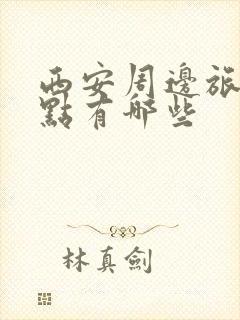 西安周邊旅
點有哪些
林真劍